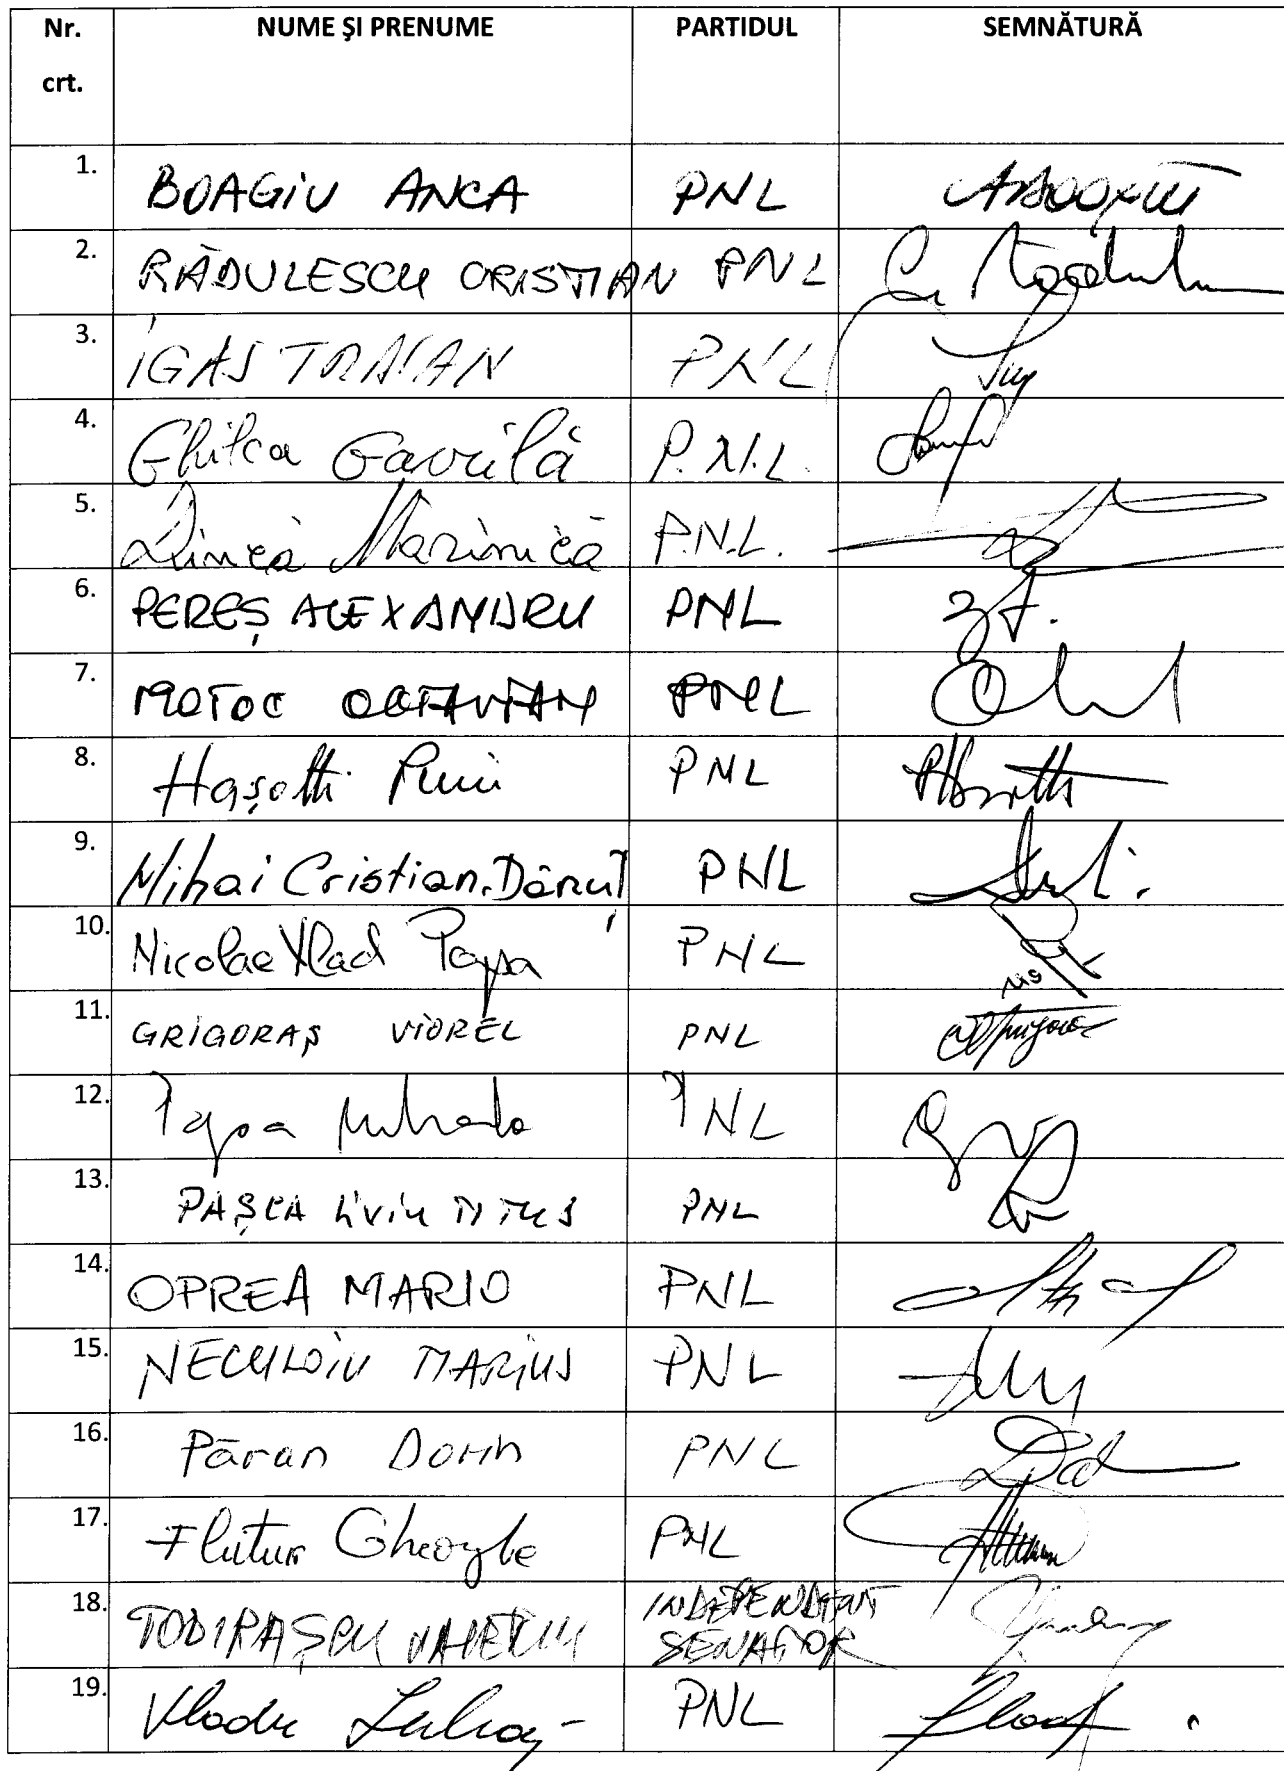 Nr. crt. NUME ŞI PRENUME PARTIDUL SEMNĂTURĂ
1. BOAGIU ANCA PNL
2. RĂDULESCU CRISTIAN PNL
3. IGAS TRAIAN PNL
4. Ghilea Gavrilă P.N.L.
5. Dincă Marinică P.N.L.
6. PEREȘ ALEXANDRU PNL
7. MOTOC OCTAVIAN PNL
8. Hașotti Puiu PNL
9. Mihai Cristian Dănuț PNL
10. Nicolae Vlad Popa PNL
11. GRIGORAȘ VIOREL PNL
12. Popa Mihaela PNL
13. PAȘCA LIVIU TITUS PNL
14. OPREA MARIO PNL
15. NECULOIU MARIUS PNL
16. Păran Dorin PNL
17. Flutur Gheorghe PNL
18. TODIRAȘCU VALERIU INDEPENDENT
SENATOR
19. Vladu PNL